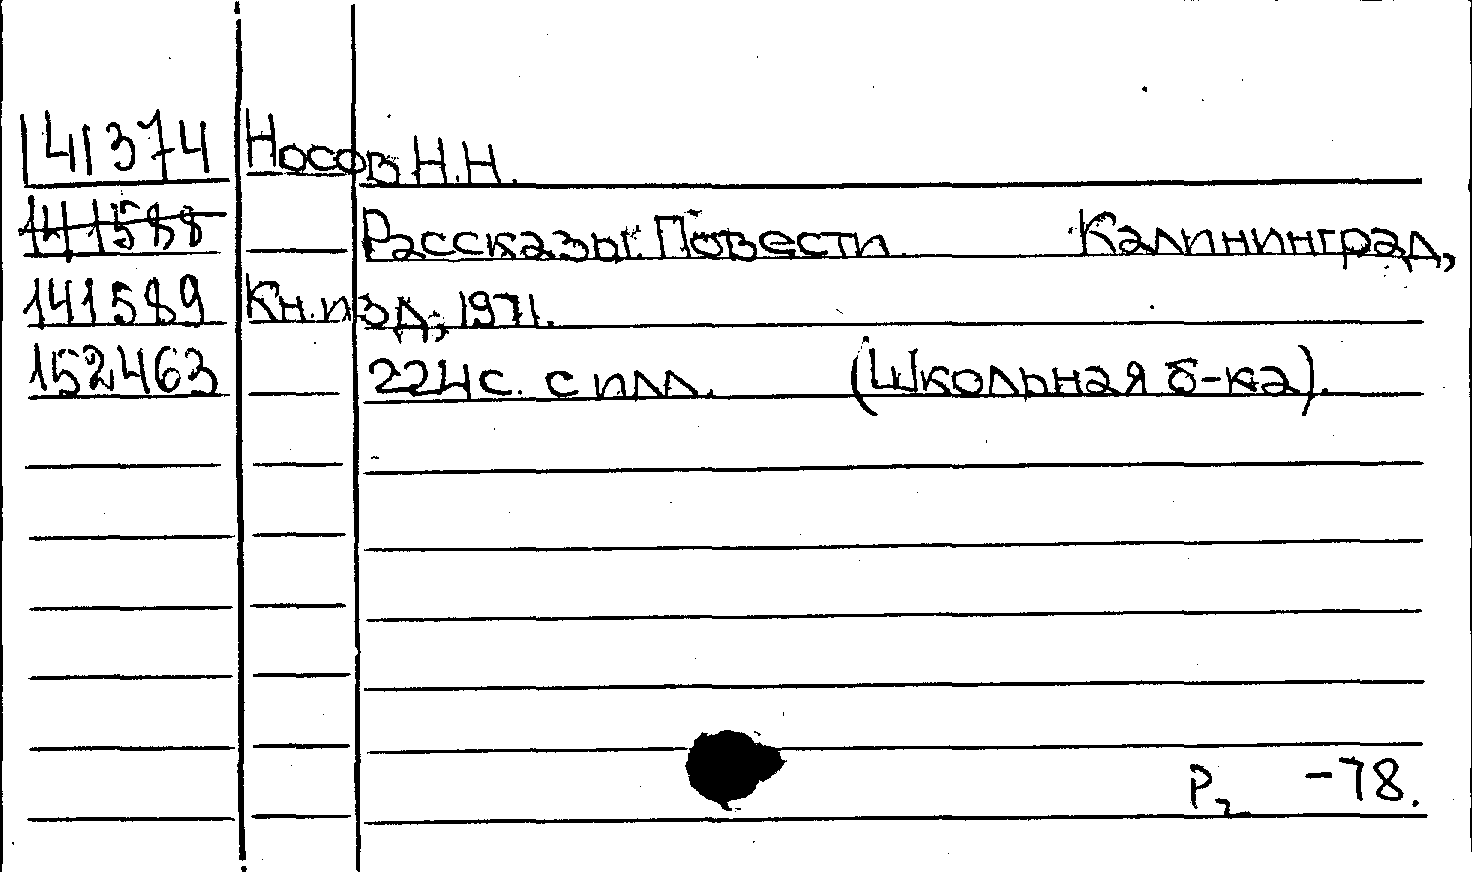 141374 Носов Н.Н.
141588 Рассказы. Повести. Калининград,
141589 Кн. изд, 1971.
152463 224 с. с илл. (Школьная б-ка).
Р2 -78.